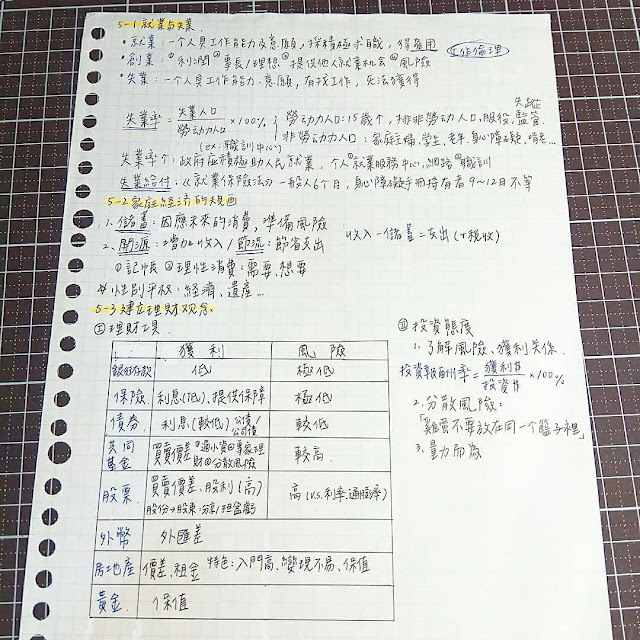 5-1 就業与失業
• 就業：一个人具工作能力及意願，採積極求職，得雇用 工作倫理
• 創業：①利潤 ②專長/理想 ③提供他人就業机会 ④風險
• 失業：一个人具工作能力、意願，有找工作，无法獲得
失業率 = 失業人口/勞動力人口 ×100%
勞動力人口：15歲↑，排非勞動人口、服役、監管、失蹤
非勞動力人口：家庭主婦、學生、老年、身心障礙、啃老…
(ex：職訓中心)
失業率↑：政府應積極助人民就業，↑①就業服務中心、網路 ②職訓
失業給付：《就業保險法》一般人6个月，身心障礙手冊持有者9~12月不等
5-2 家庭經濟的規画
1. 儲蓄：因應未來的消費，準備風險
收入－儲蓄＝支出(+稅收)
2. 開源：增加收入/節流：節省支出
①記帳 ②理性消費：需要、想要
☆性別平权：經濟、遺產…
5-3 建立理財观念
① 理財工具
獲利 風險
銀行存款 低 極低
保險 利息(低)、提供保障 極低
債券 利息(較低) 公債/公司債 較低
共同基金 買賣價差 ①適小資 ②專家理財 ③分散風險 較高
股票 買賣價差、股利(高) 高(v.s.利率、通膨率)
股份→股東：分享/担盈虧
外幣 外匯差
房地產 價差、租金 特色：入門高、變現不易、保值
黃金 保值
② 投資態度
1. 了解風險、獲利关係
投資報酬率 = 獲利$/投資$ ×100%
2. 分散風險：
「雞蛋不要放在同一个籃子裡」
3. 量力而為